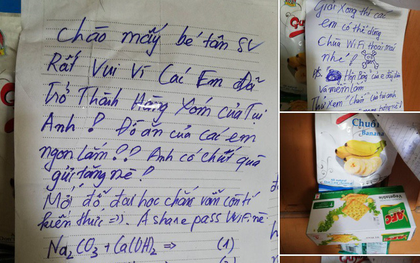 Chào mấy bé tân SV
Rất Vui Vì Các Em Đã
Trở Thành Hàng Xóm của Tụi
Anh! Đồ ăn của các em
ngon lắm??? Anh có chút quà
gửi tặng nè!
Mới đỗ đại học chắc vẫn còn tí
kiến thức =)). A share pass WiFi nè
Na2CO3 + Ca(OH)2 => (1)
Giải Xong thì các
em có thể dùng
Chùa WiFi thoải mái
nhé!
và mềm lắm
Thử xem "Chuối" của tụi anh
Chuối
Banana
AFC